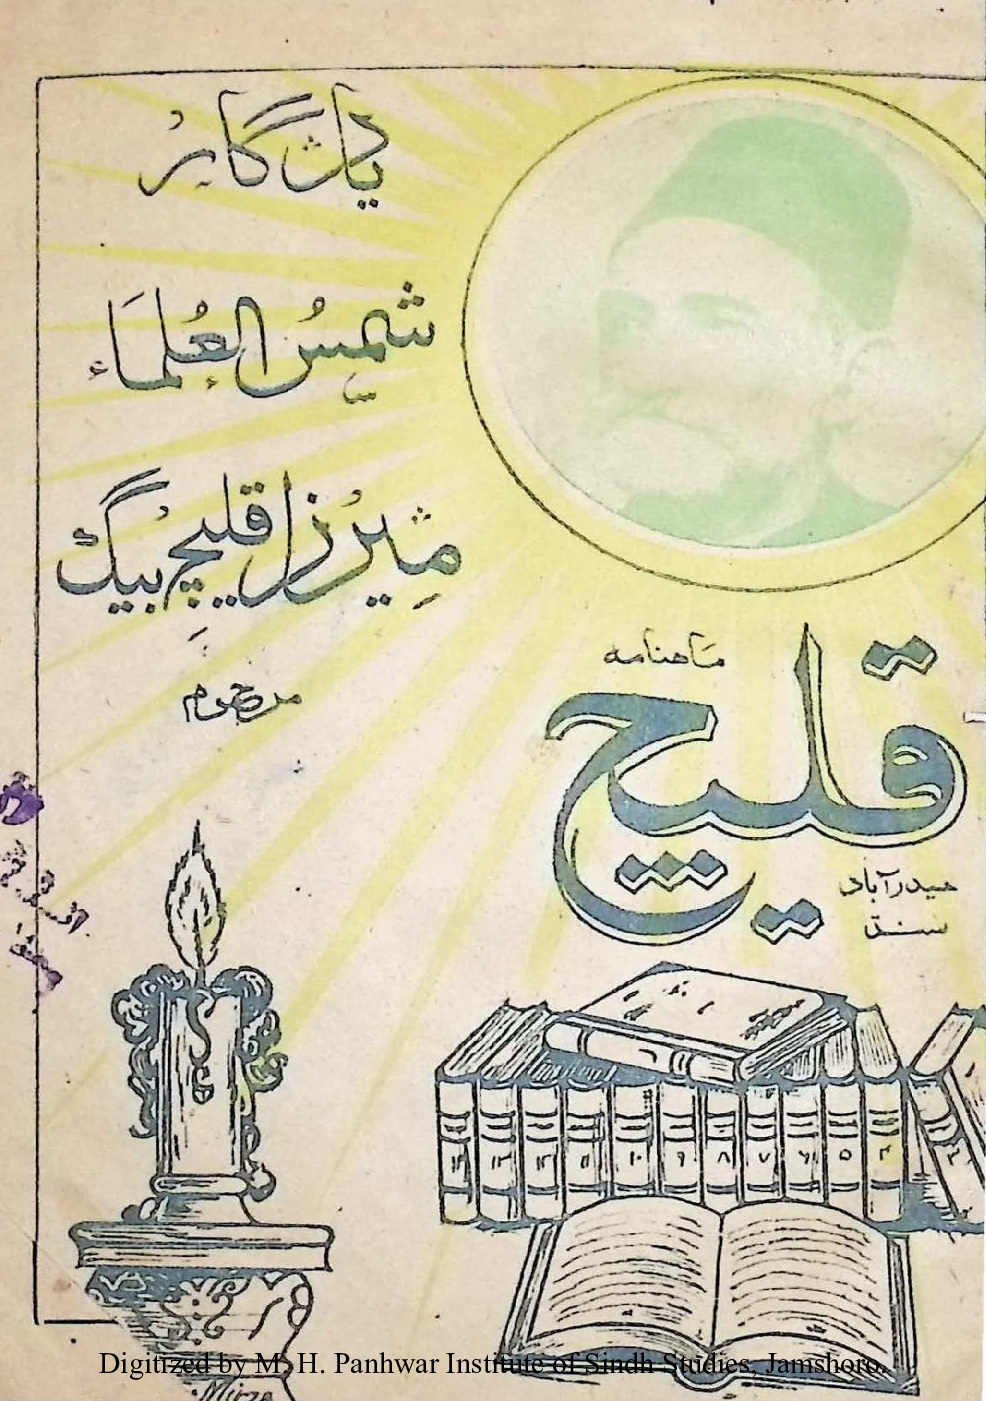 يادگار
شمسُ العُلماء
مِيرزا قليچ بيگ
مرحوم
ماهنامه
قليچ
حيدرآباد
سنڌ
١٢ ١٣ ١٢ ١١ ١٠ ٩ ٨ ٧ ٦ ٥ ٤
Digitized by M. H. Panhwar Institute of Sindh Studies, Jamshoro.
Mirza